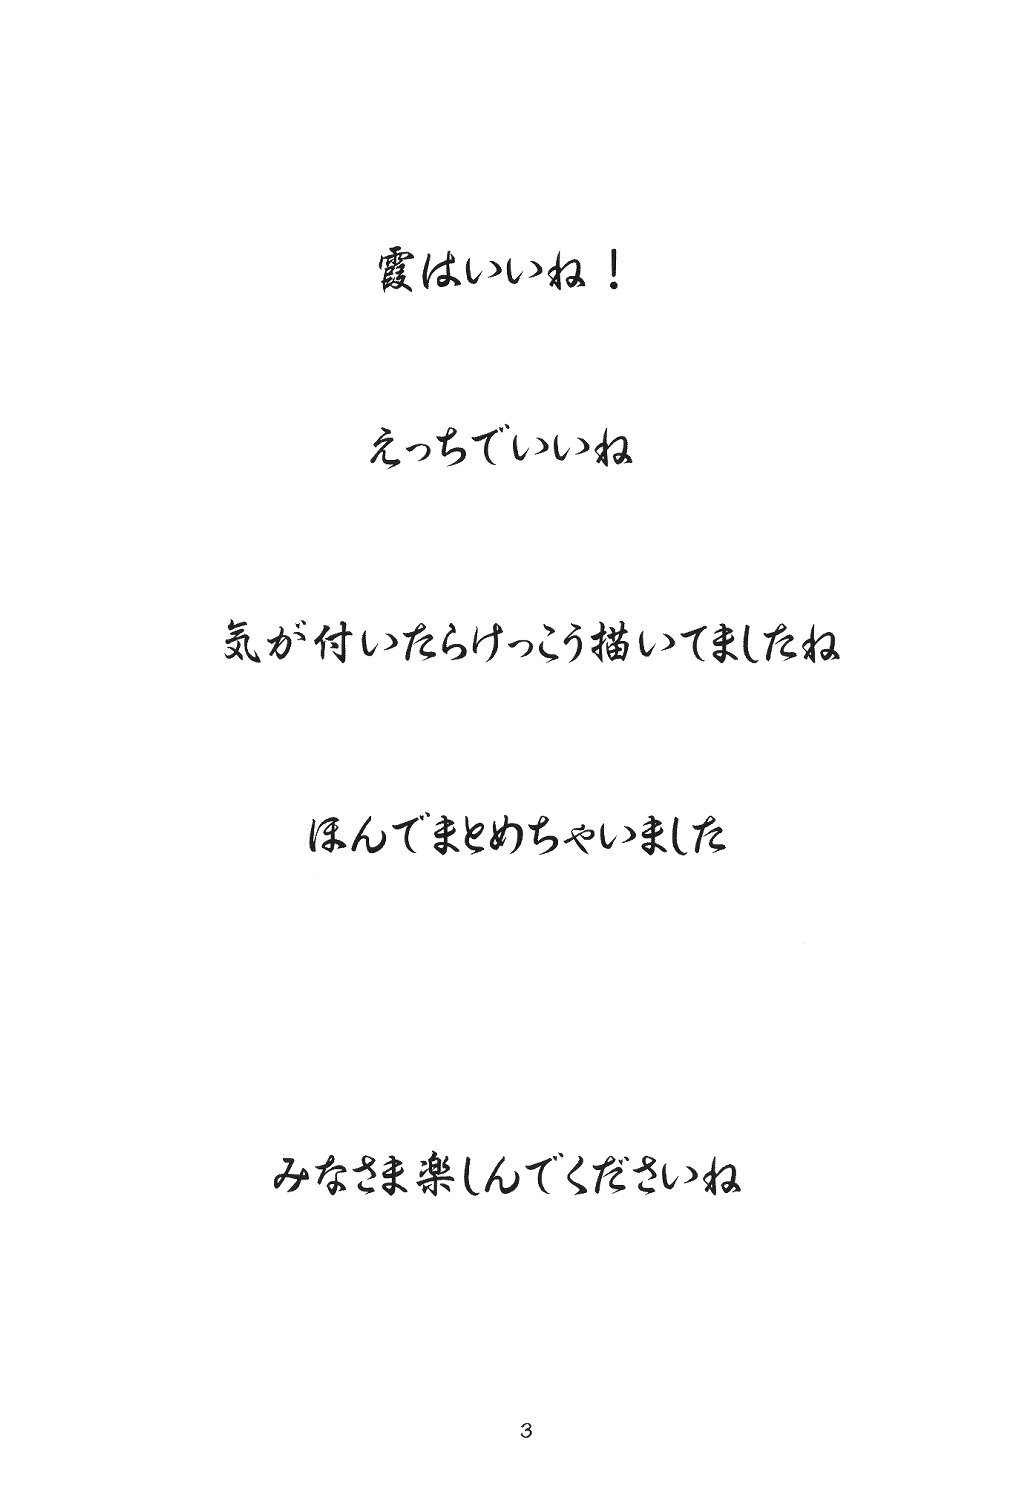 霞はいいね！
えっちでいいね
気が付いたらけっこう描いてましたね
ほんでまとめちゃいました
みなさま楽しんでくださいね
3